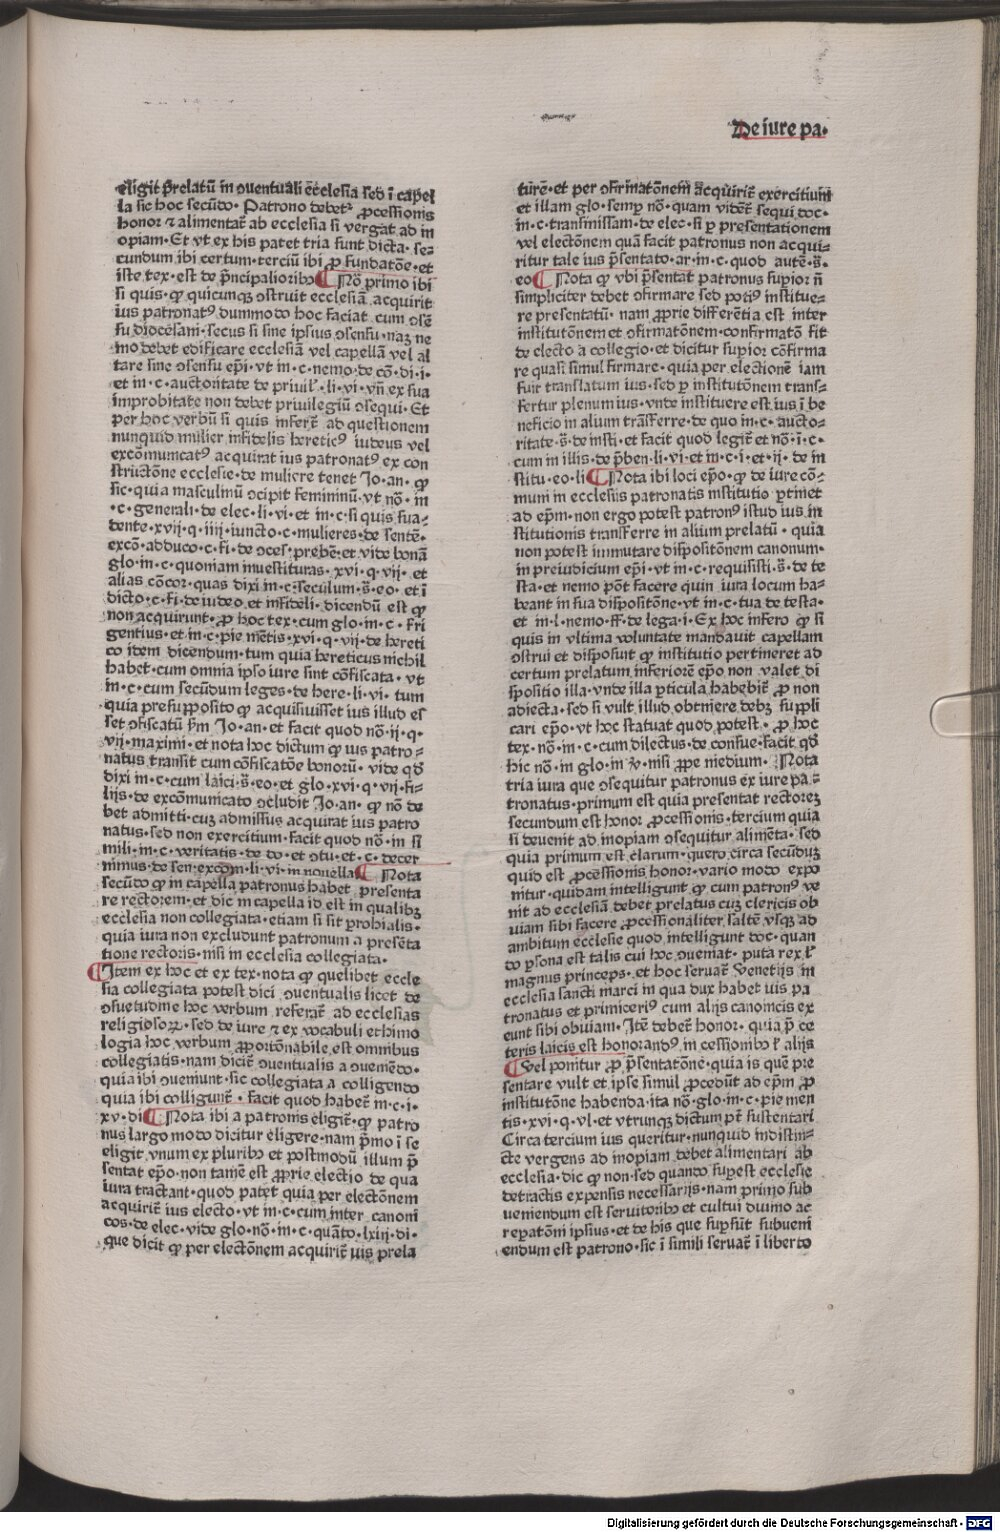 De iure pa·
eligit p̄relatū in ↄuentuali ec̄clesia sed ī capel
la sic hoc secūdo· Patrono debetᷣ ꝓcessionis
honor ⁊ alimentat᷑ ab ecclesia si vergat ad in
opiam· Et vt ex his patet tria sunt dicta· se-
cundum ibi certum· terciū ibi ꝓ fundatōe· et
iste tex· est de p̄ncipalioribꝰ ¶ Nō primo ibi
si quis· qꝫ quicunqꝫ ↄstruit ecclesiā acquirit
ius patronatꝰ dummodo hoc faciat cum ↄsē
su diocesani· secus si sine ipsius ↄsensu· naꝫ ne
mo debet edificare ecclesiā vel capellā vel al
tare sine ↄsensu ep̄i· vt in·c·nemo·de cō·di·i·
et in·c·auctoritate de priuil̓·li·vi·vn̄ ex sua
improbitate non debet priuilegiū ↄsequi· Et
per hoc verbū si quis infert᷑ ad questionem
nunquid mulier infidelis hereticꝰ iudeus vel
excōmunicatꝰ acquirat ius patronatꝰ ex con
structōne ecclesie· de muliere tenet Jo·an· qꝫ
sic· quia masculinū ↄcipit femininū· vt nō· in
·c·generali·de elec·li·vi·et in·c·si quis sua-
dente·xvij·q·iiij·iuncto·c·mulieres·de sentē·
excō·adduco·c·fi·de ↄces·prebē·et vide bonā
glo·in·c·quoniam inuestituras·xvi·q·vij·et
alias cōcor·quas dixi in·c·seculum·s̄·eo·et ī
dicto·c·fi·de iudeo et infideli·dicendū est qꝫ
non acquirunt·ꝓ hoc tex·cum glo·in·c·fri
gentius·et in·c·pie mētis·xvi·q·vij·de hereti
co idem dicendum·tum quia hereticus nichil
habet·cum omnia ipso iure sint cōfiscata·vt
in·c·cum secūdum leges·de here·li·vi·tum
quia presupposito qꝫ acquisiuisset ius illud es
set ↄfiscatū s̄m Jo·an·et facit quod nō·ij·q·
vij·maximi·et nota hoc dictum qꝫ ius patro-
natus transit cum cōfiscatōe bonorū·vide qd̄
dixi in·c·cum laici·s̄·eo·et glo·xvi·q·vij·fi-
lijs·de excōmunicato ↄcludit Jo·an·qꝫ nō de
bet admitti·cuꝫ admissus acquirat ius patro
natus·sed non exercitium·facit quod nō·in si
mili·in·c·veritatis·de do·et ↄtu·et·c·decer
nimus·de sen·excōm·li·vi·in nouella ¶ Nota
secūdo qꝫ in capella patronus habet presenta
re rectorem·et dic in capella id est in qualibꝫ
ecclesia non collegiata·etiam si sit parrochialis·
quia iura non excludunt patronum a presēta
tione rectoris·nisi in ecclesia collegiata·
¶ Item ex hoc et ex tex·nota qꝫ quelibet eccle
sia collegiata potest dici ↄuentualis licet de
ↄsuetudine hoc verbum referat᷑ ad ecclesias
religiosoꝝ·sed de iure ⁊ ex vocabuli ethimo
logia hoc verbum ꝓportōnabile est omnibus
collegiatis·nam dicit᷑ ↄuentualis a ↄueniēdo·
quia ibi ↄueniunt·sic collegiata a colligendo
quia ibi colligunt᷑·facit quod habet᷑ in·c·i·
xv·di ¶ Nota ibi a patronis eligit᷑·qꝫ patro
nus largo modo dicitur eligere·nam p̄mo ī se
eligit vnum ex pluribꝰ et postmodū illum p̄
sentat ep̄o·non tamē est ꝓprie electio de qua
iura tractant·quod patet quia per electōnem
acquirit᷑ ius electo·vt in·c·cum inter canoni
cos·de elec·vide glo·nō·in·c·quāto·lxiij·di·
que dicit qꝫ per electōnem acquirit᷑ ius prela
turē·et per ↄfirmatōnem acquirit᷑ exercitium
et illam glo·semꝑ nō·quam vident᷑ sequi doc·
in·c·transmissam·de elec·si ꝑ presentationem
vel electōnem quā facit patronus non acqui-
ritur tale ius p̄sentato·ar·in·c·quod autē·s̄·
eo ¶ Nota qꝫ vbi p̄sentat patronus supior nō
simpliciter debet ↄfirmare sed potiꝰ institue-
re presentatū·nam ꝓprie differētia est inter
institutōnem et ↄfirmatōnem·confirmatō fit
de electo a collegio·et dicitur supior cōfirma
re quasi simul firmare·quia per electionē iam
fuit translatum ius·sed ꝑ institutōnem trans-
fertur plenum ius·vnde instituere est ius ī be
neficio in alium trāsferre·de quo in·c·aucto-
ritate·s̄·de insti·et facit quod legit᷑ et nō·ī·c·
cum in illis·de p̄ben·li·vi·et in·c·i·et·ij·de in
stitu·eo·li ¶ Nota ibi loci ep̄o·qꝫ de iure cō-
muni in ecclesiis patronatis institutio ꝑtinet
ad ep̄m·non ergo potest patronꝰ istud ius in
stitutionis transferre in alium prelatū·quia
non potest immutare dispositōnem canonum·
in preiudicium ep̄i·vt in·c·requisisti·s̄·de te
sta·et nemo pōt facere quin iura locum ha-
beant in sua dispositōne·vt in·c·tua de testa·
et in·l·nemo·ff·de lega·i·Ex hoc infero qꝫ si
quis in vltima voluntate mandauit capellam
ↄstrui et disposuit qꝫ institutio pertineret ad
certum prelatum inferiorem ep̄o non valet di
spositio illa·vnde illa ꝑticula habebit᷑ ꝓ non
adiecta·sed si vult illud obtinere debꝫ suppli
cari ep̄o·vt hoc statuat quod potest·ꝓ hoc
tex·nō·in·c·cum dilectus·de consue·facit qd̄
hic nō·in glo·in v̓·nisi ꝓpe medium· Nota
tria iura que ↄsequitur patronus ex iure pa-
tronatus·primum est quia presentat rectorem
secundum est honor ꝓcessionis·tercium quia
si deuenit ad inopiam ↄsequitur alimēta·sed
quia primum est clarum·quero circa secūdum
quid est ꝓcessionis honor·vario modo expo
nitur·quidam intelligunt qꝫ cum patronꝰ ve
nit ad ecclesiā debet prelatus cuꝫ clericis ob
uiam sibi facere ꝓcessionaliter saltē vsqꝫ ad
ambitum ecclesie quod intelligunt doc·quan
do ꝑsona est talis cui hoc ↄueniat·puta rex l̓
magnus princeps·et hoc seruat᷑ Venetijs in
ecclesia sancti marci in qua dux habet ius pa
tronatus et primiceriꝰ cum alijs canonicis ex
eunt sibi obuiam·Itē debet᷑ honor·quia p̄ ce
teris laicis est honorandꝰ in cessionibꝰ l̓ alijs
¶ Vel ponitur ꝓ p̄sentatōne·quia is quē pre
sentare vult et ipse simul ꝓcedūt ad ep̄m ꝓ
institutōne habenda·ita nō·glo·in·c·pie men
tis·xvi·q·vl·et vtrunqꝫ dictum pt̄ sustentari
Circa tercium ius queritur·nunquid indistin-
cte vergens ad inopiam debet alimentari ab
ecclesia·dic qꝫ non·sed quando suꝑest ecclesie
detractis expensis necessarijs·nam primo sub
ueniendum est seruitoribꝰ et cultui diuino ac
reꝑatōni ipsius·et de his que suꝑsūt subueni
endum est patrono·sic ī simili seruat᷑ ī liberto
Digitalisierung gefördert durch die Deutsche Forschungsgemeinschaft · DFG